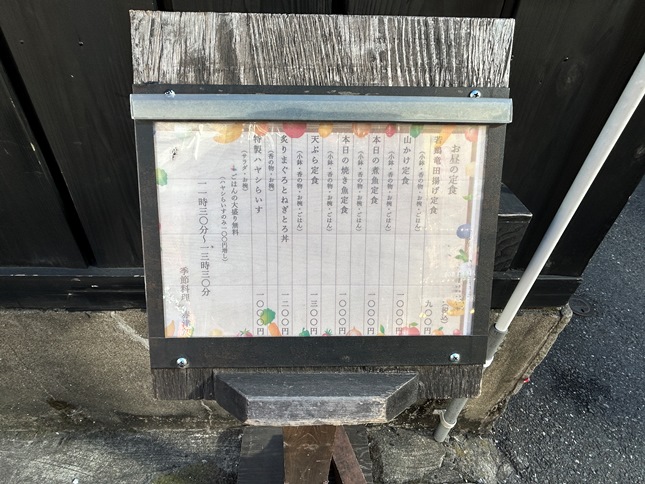 お昼の定食
(税込)
若鶏竜田揚げ定食 九〇〇円
(小鉢・香の物・お椀・ごはん)
山かけ定食 一〇〇〇円
(小鉢・香の物・お椀・ごはん)
本日の煮魚定食 一〇〇〇円
(小鉢・香の物・お椀・ごはん)
本日の焼き魚定食 一〇〇〇円
(小鉢・香の物・お椀・ごはん)
天ぷら定食 一三〇〇円
(小鉢・香の物・お椀・ごはん)
炙りまぐろとねぎとろ丼 一二〇〇円
(香の物・お椀)
特製ハヤシらいす 一〇〇〇円
(サラダ・お椀)
*ごはんの大盛り無料
(ハヤシらいすのみ一〇〇円増し)
一一時三〇分～一三時三〇分
季節料理